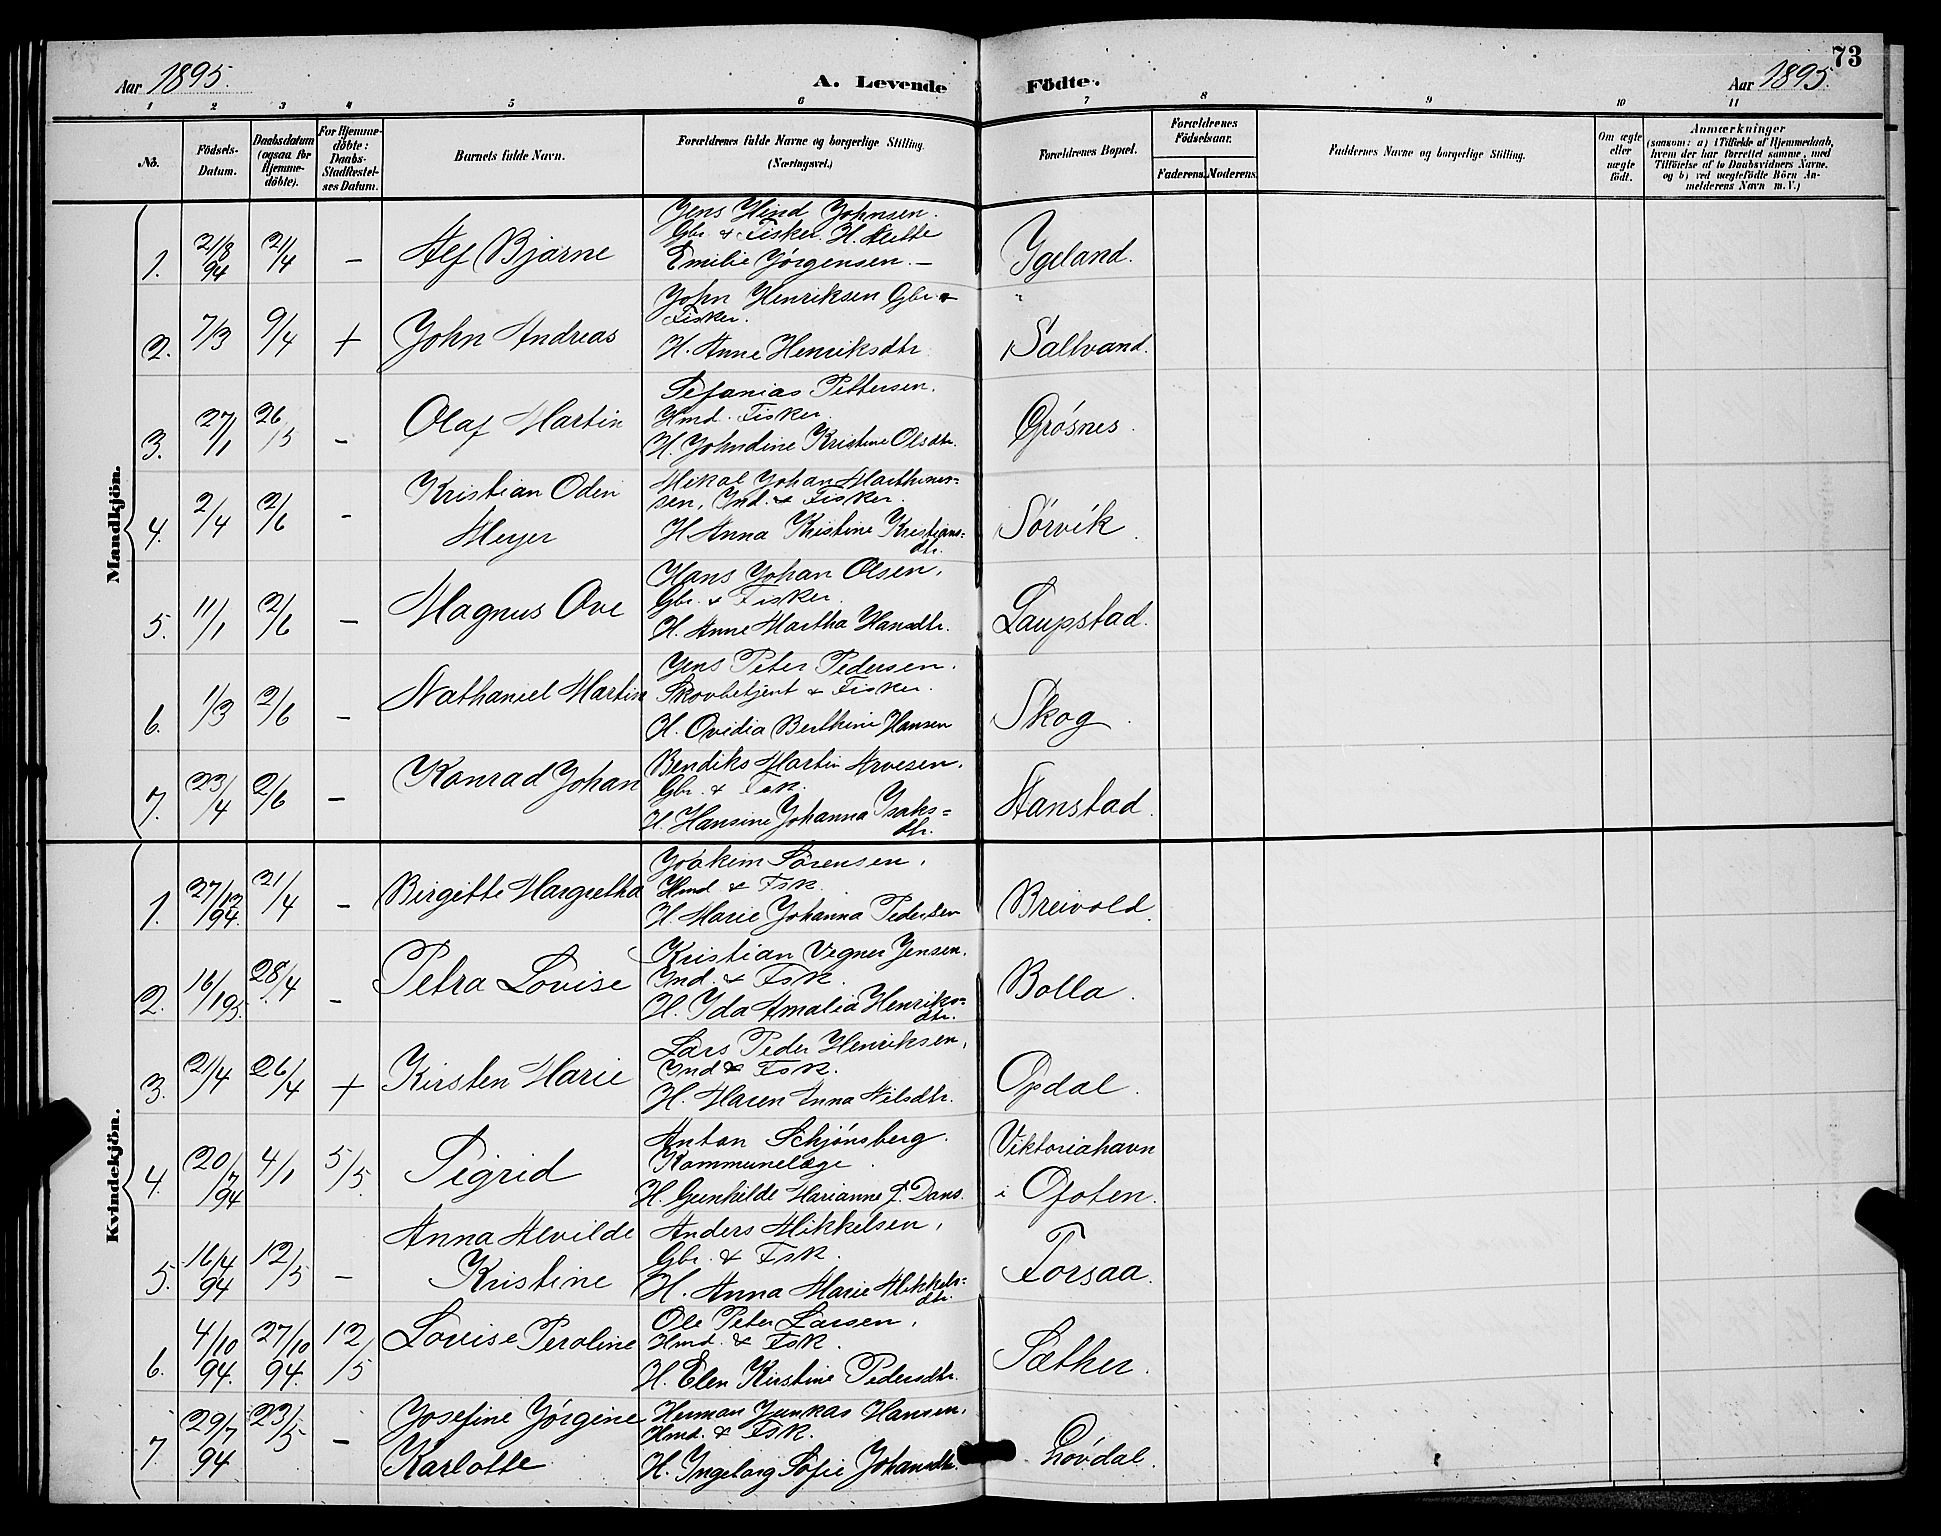 73
Aar 1895.
A. Levende Födte.
Aar 1895.
1 2 3 4 5 6 7 8 9 10 11
No.
Födsels-
Datum.
Daabsdatum
(ogsaa for
Hjemme-
döbte).
For Hjemme-
döbte:
Daabs-
Stadfestel-
ses Datum.
Barnets fulde Navn.
Forældrenes fulde Navne og borgerlige Stilling.
(Næringsvei.)
Forældrenes Bopæl.
Forældrenes
Födselsaar.
Faderens. Moderens.
Faddernes Navne og borgerlige Stilling.
Om ægte
eller
uægte
födt.
Anmærkninger
(saasom: a) i Tilfælde af Hjemmedaab,
hvem der har forrettet samme, med
Tilföielse af to Daabsvidners Navne.
og b) ved uægtefödte Börn An-
melderens Navn m. V.)
Mandkjön.
Jens Hind Johnsen.
Gbr. & Fisker. H. Mette
1. 21/8 94 21/4 — Alf Bjarne Emilie Jörgensen. — Ygeland.
John Henriksen Gbr. &
Fisker.
2. 7/3 9/4 + John Andreas H. Anne Henriksdtr. Saltvand.
Sefanias Pettersen.
Hmd. Fisker.
3. 27/1 26/5 — Olaf Martin H. Johndine Kristine Olsdtr. Grösnes.
Kristian Odin Mikal Johan Marthines-
sen, Ind. & Fisker.
4. 2/4 2/6 — Meyer H Anna Kristine Kristians- Sörvik.
dtr.
Hans Johan Olsen,
Gbr. & Fisker.
5. 11/1 2/6 — Magnus Ove H. Anne Martha Hansdtr. Laupstad.
Jens Peter Pedersen.
Nathaniel Martin Skovbetjent & Fisker.
6. 1/3 2/6 — H. Ovidia Berthine Hansen Skog.
Bendiks Martin Arvesen.
Konrad Johan Gbr. & Fsk.
7. 23/4 2/6 — H. Hansine Johanna Isaks- Hanstad.
dtr.
Kvindekjön.
Joakim Sörensen,
Hmd & Fsk.
1. 27/12 94. 21/4 — Birgitte Margretha H. Marie Johanna Pedersen Breivold.
Kristian Vegner Jensen.
Ind. & Fsk.
2. 16/1 95. 28/4 — Petra Lovise H. Ida Amalia Henriks- Bolla.
dtr.
Lars Peder Henriksen,
Ind & Fsk.
3. 21/4 26/4 + Kirsten Marie H. Maren Anna Nilsdtr. Opdal.
Anton Schjönsberg. Viktoriahavn
Kommunelæge.
4. 20/7 94 4/1 5/5. Sigrid H. Gunhilde Marianne f. Dans. i Ofoten.
Anna Alvilde Anders Mikkelsen,
Gbr. & Fsk.
5. 16/4 94 12/5 — Kristine H. Anna Marie Mikkels- Forsaa.
dtr.
Ole Peter Larsen,
Lovise Peroline Hmd. & Fsk.
6. 4/10 94. 27/10 94. 12/5 H. Elen Kirstine Pedersdtr. Sæther.
Josefine Jörgine Herman Junkas Hansen.
Hmd. & Fsk.
7. 29/7 94 23/5 — Karlotte H. Ingeborg Sofie Johansdtr. Lövdal.